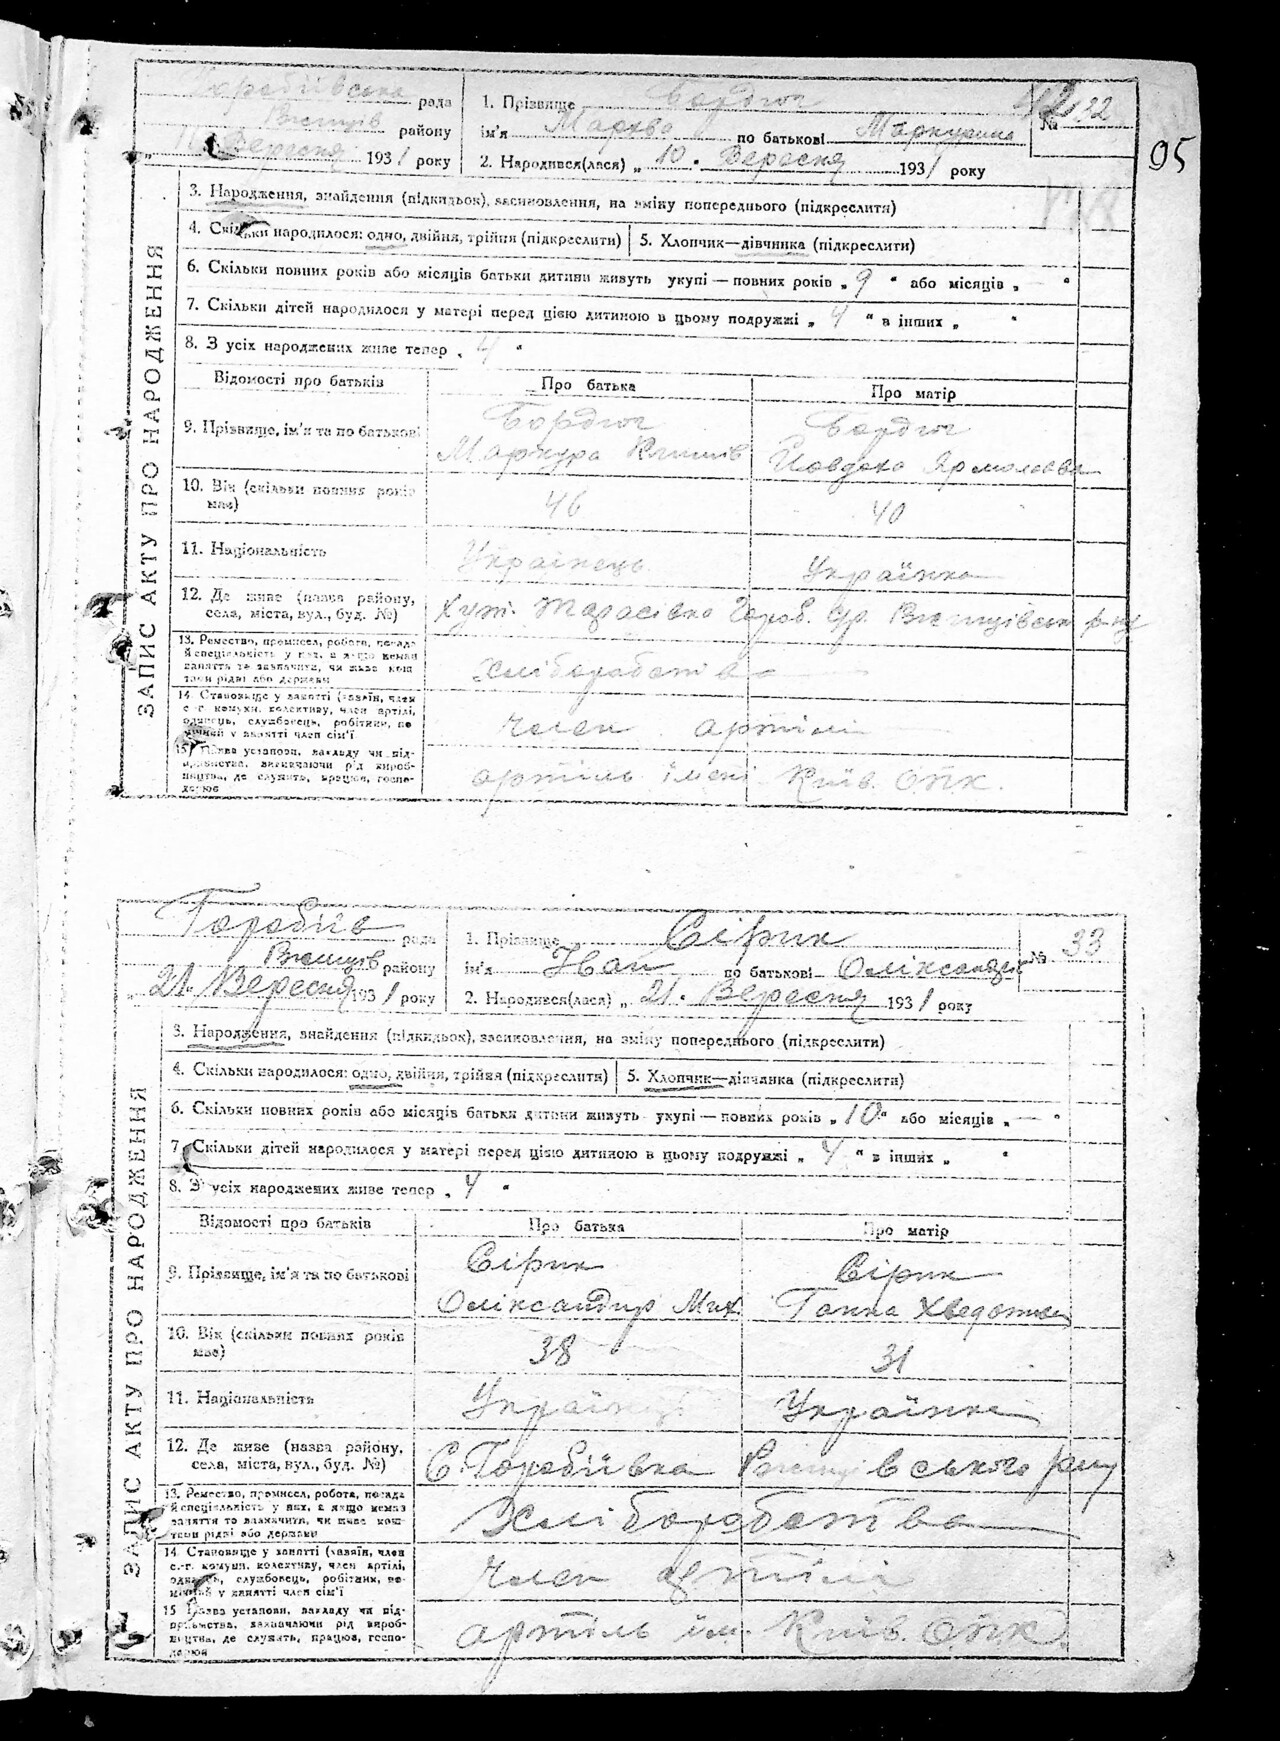 95
ЗАПИС АКТУ ПРО НАРОДЖЕННЯ
рада
Вчепців району
Вересня 1931 року
1. Прізвище Бордюг
ім'я Мархва по батькові Маркурина
№ 32
2. Народився(лася) „ 10. Вересня 1931 року
3. Народження, знайдення (підкидьок), засиновлення, на зміну попереднього (підкреслити)
4. Скільки народилося: одно, двійня, трійня (підкреслити) 5. Хлопчик—дівчинка (підкреслити)
6. Скільки повних років або місяців батьки дитини живуть укупі — повних років „ 9 “ або місяців „ — “
7. Скільки дітей народилося у матері перед цією дитиною в цьому подружжі „ 4 “ в інших „ “
8. З усіх народжених живе тепер „ 4 “
Відомості про батьків Про батька Про матір
9. Прізвище, ім'я та по батькові
Бордюг Бордюг
Маркура Климів Йовдоха Ярмолаєва
10. Вік (скільки повних років має) 46 40
11. Національність Українець Українка
12. Де живе (назва району, села, міста, вул., буд. №) Хут. Тарасівка Гороб. с/р.
13. Ремество, промисел, робота, посада й спеціальність у них, а якщо немає заняття то зазначити, чи живе кошtами рідні або держави
хліборобств
14. Становище у занятті (хазяїн, член с.-г. комуни, колективу, член артілі, одинець, службовець, робітник, помічний у занятті член сім'ї
член артілі
15. Назва установи, закладу чи підприємства, визначаючи рід виробництва, де служить, працює, господарює
артіль імені Київ. ОПК.
ЗАПИС АКТУ ПРО НАРОДЖЕННЯ
Горобіїв рада
району
21. Вересня 1931 року
1. Прізвище Сірик
№ 33
ім'я Іван по батькові Оліксандрів
2. Народився(лася) „ 21. Вересня 1931 року
3. Народження, знайдення (підкидьок), засиновлення, на зміну попереднього (підкреслити)
4. Скільки народилося: одно, двійня, трійня (підкреслити) 5. Хлопчик—дівчинка (підкреслити)
6. Скільки повних років або місяців батьки дитини живуть укупі — повних років „ 10 “ або місяців „ — “
7. Скільки дітей народилося у матері перед цією дитиною в цьому подружжі „ 4 “ в інших „ “
8. З усіх народжених живе тепер „ 4 “
Відомості про батьків Про батька Про матір
9. Прізвище, ім'я та по батькові
Сірик Сірик
Оліксандир Мих. Ганна Хведотівна
10. Вік (скільки повних років має) 38 31
11. Національність Українець Українка
12. Де живе (назва району, села, міста, вул., буд. №) С. Горобіївка
13. Ремество, промисел, робота, посада й спеціальність у них, а якщо немає заняття то зазначити, чи живе коштами рідні або держави
Хліборобства
14. Становище у занятті (хазяїн, член с.-г. комуни, колективу, член артілі, одинець, службовець, робітник, помічний у занятті член сім'ї
член артілі
15. Назва установи, закладу чи підприємства, зазначаючи рід виробництва, де служить, працює, господарює
артіль ім. Київ. ОПК.